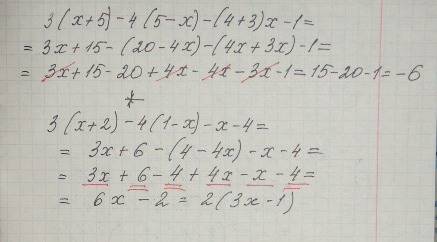 3(x+5)-4(5-x)-(4+3)x-1=
=3x+15-(20-4x)-(4x+3x)-1=
=3x+15-20+4x-4x-3x-1=15-20-1=-6
3(x+2)-4(1-x)-x-4=
=3x+6-(4-4x)-x-4=
=3x+6-4+4x-x-4=
=6x-2=2(3x-1)